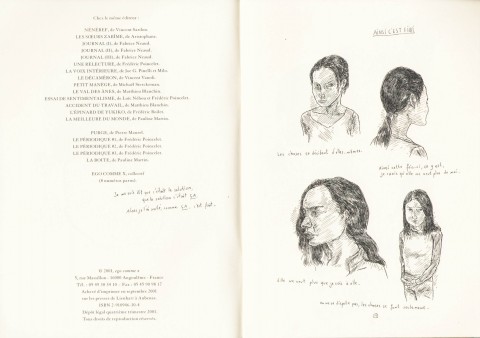 Chez le même éditeur :
NÉNÉREF, de Vincent Sardon.
LES SŒURS ZABÎME, de Aristophane.
JOURNAL (I), de Fabrice Neaud.
JOURNAL (II), de Fabrice Neaud.
JOURNAL (III), de Fabrice Neaud.
UNE RELECTURE, de Frédéric Poincelet.
LA VOIX INTÉRIEURE, de Joe G. Pinelli et Milo.
LE DÉCAMÉRON, de Vincent Vanoli.
PETIT MANÈGE, de Michaël Sterckeman.
LE VAL DES ÂNES, de Matthieu Blanchin.
ESSAI DE SENTIMENTALISME, de Loïc Néhou et Frédéric Poincelet.
ACCIDENT DU TRAVAIL, de Matthieu Blanchin.
L'ÉPINARD DE YUKIKO, de Frédéric Boilet.
LA MEILLEURE DU MONDE, de Pauline Martin.
PURGE, de Pierre
LE PÉRIODIQUE 01, de Frédéric Poincelet.
LE PÉRIODIQUE de Frédéric Poincelet.
LE PÉRIODIQUE de Frédéric Poincelet.
LA BOÎTE, de Pauline Martin.
EGO COMME X, collectif
numéros parus).
Je me suis dit que c'était la solution,
que la solution c'était ça.
Alors je l'ai noté, comme ça, c'est fait.
© 2001, ego comme x
16000 Angoulême - France
Tél : 05 45
Achevé d'imprimer en septembre 2001
sur les presses de
ISBN 2-910946-
Dépôt légal quatrième trimestre 2001.
Tous droits de reproduction réservés.
AINSI C'EST FINI.
Les choses se décident d'elles-mêmes.
je crois qu'elle ne veut plus de moi.
elle ne veut plus que je sois à elle.
les choses se font seulement.